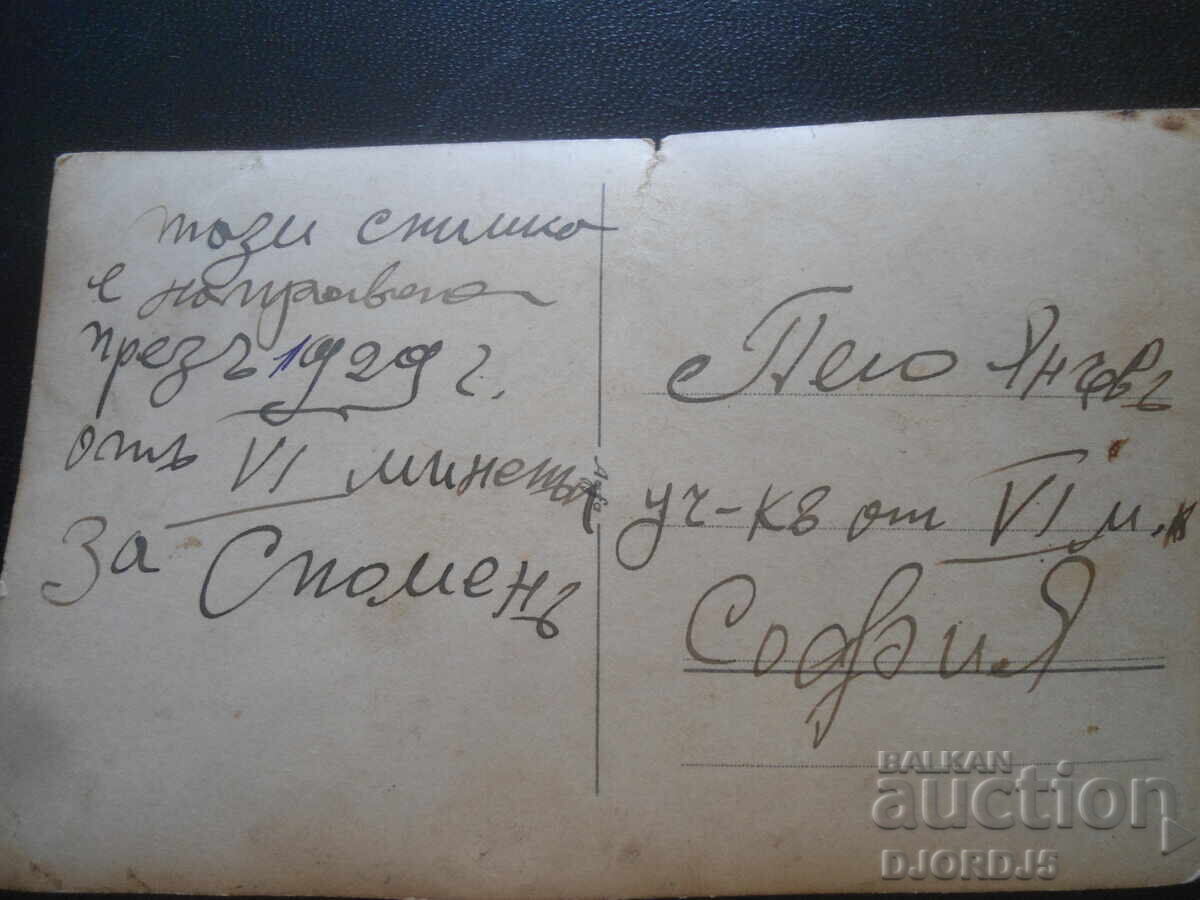 този снимка
е направена
презъ 1929 г.
отъ VI
за Споменъ
с Пею Янковъ
уч-къ от VI м. к
София
BALKAN
auction
DJORDJ5